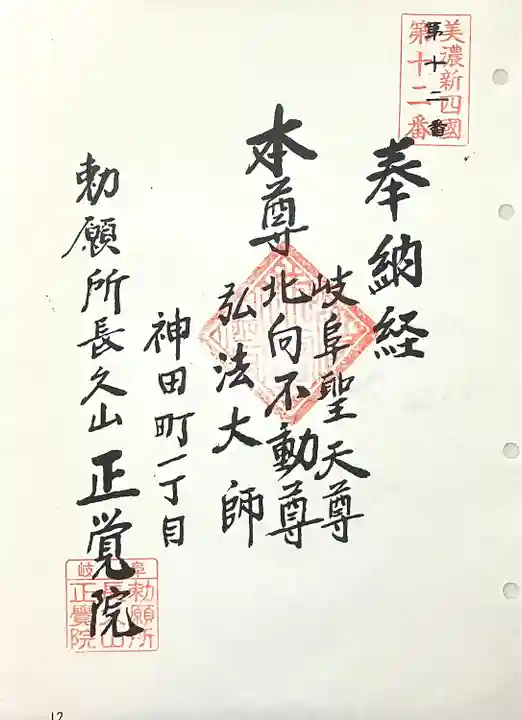 美濃新四國
第十二番
第十二番
奉納経
岐阜聖天尊
本尊北向不動尊
弘法大師
神田町一丁目
勅願所長久山正覚院
岐阜
勅願所
長久山
正覺院
12